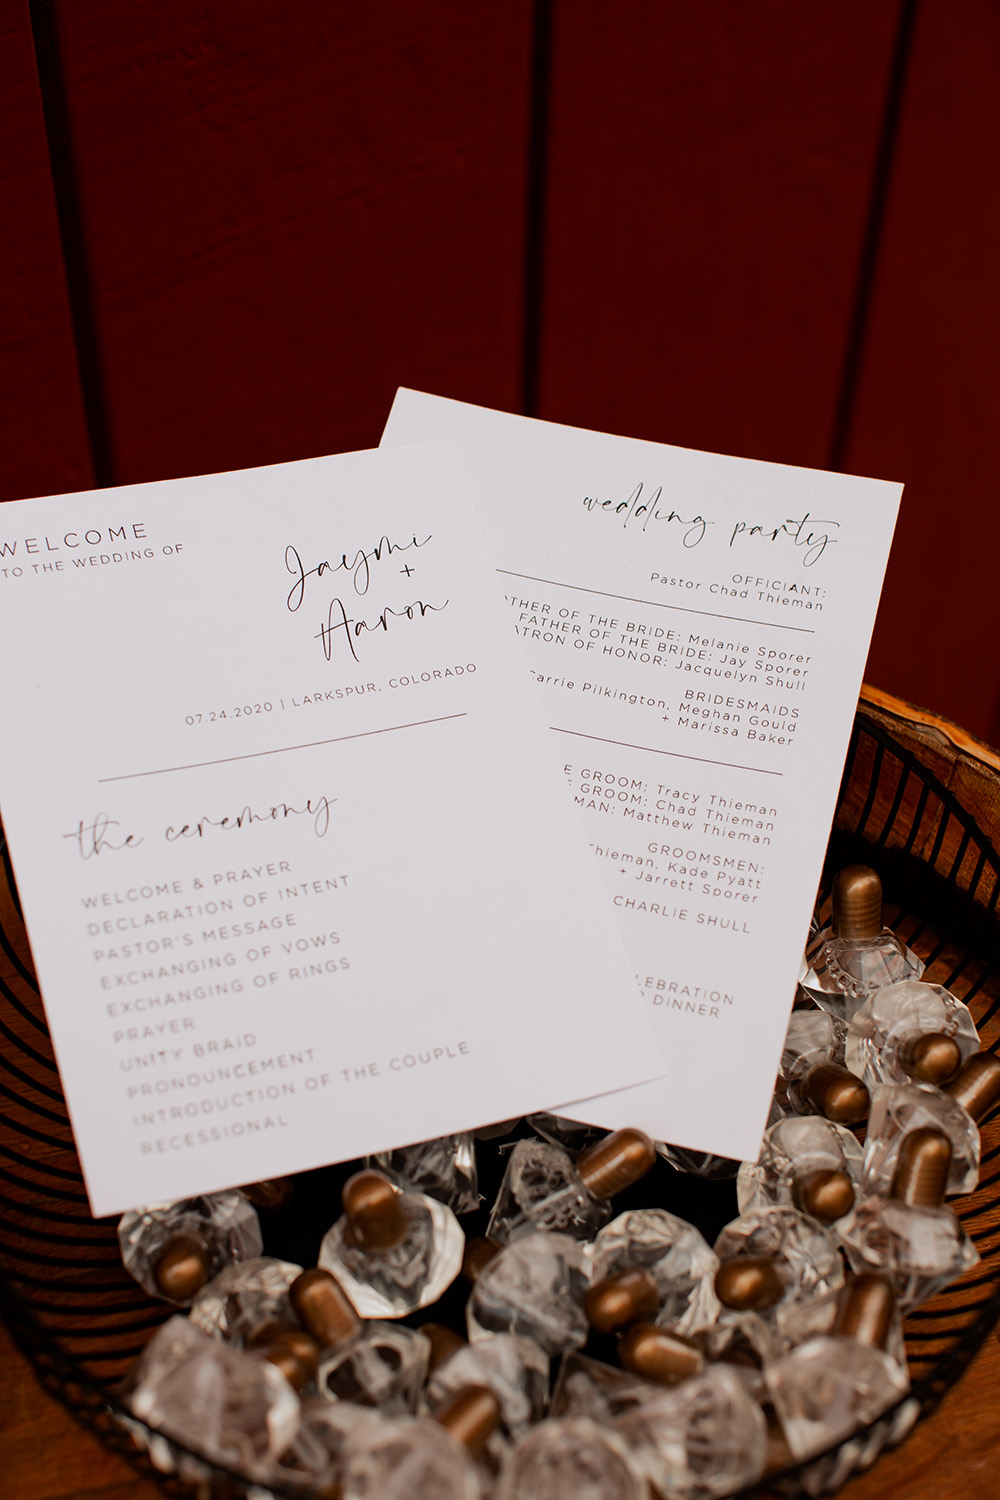 WELCOME
TO THE WEDDING OF
Jaymi
+
Aaron
07.24.2020 | LARKSPUR, COLORADO
the ceremony
WELCOME & PRAYER
DECLARATION OF INTENT
PASTOR'S MESSAGE
EXCHANGING OF VOWS
EXCHANGING OF RINGS
PRAYER
UNITY BRAID
PRONOUNCEMENT
INTRODUCTION OF THE COUPLE
RECESSIONAL
wedding party
OFFICIANT:
Pastor Chad Thieman
OF THE BRIDE: Melanie Sporer
FATHER OF THE BRIDE: Jay Sporer
OF HONOR: Jacquelyn Shull
BRIDESMAIDS
Carrie Pilkington, Meghan Gould
+ Marissa Baker
GROOM: Tracy Thieman
GROOM: Chad Thieman
MAN: Matthew Thieman
GROOMSMEN:
Thieman, Kade Pyatt
+ Jarrett Sporer
CHARLIE SHULL
DINNER